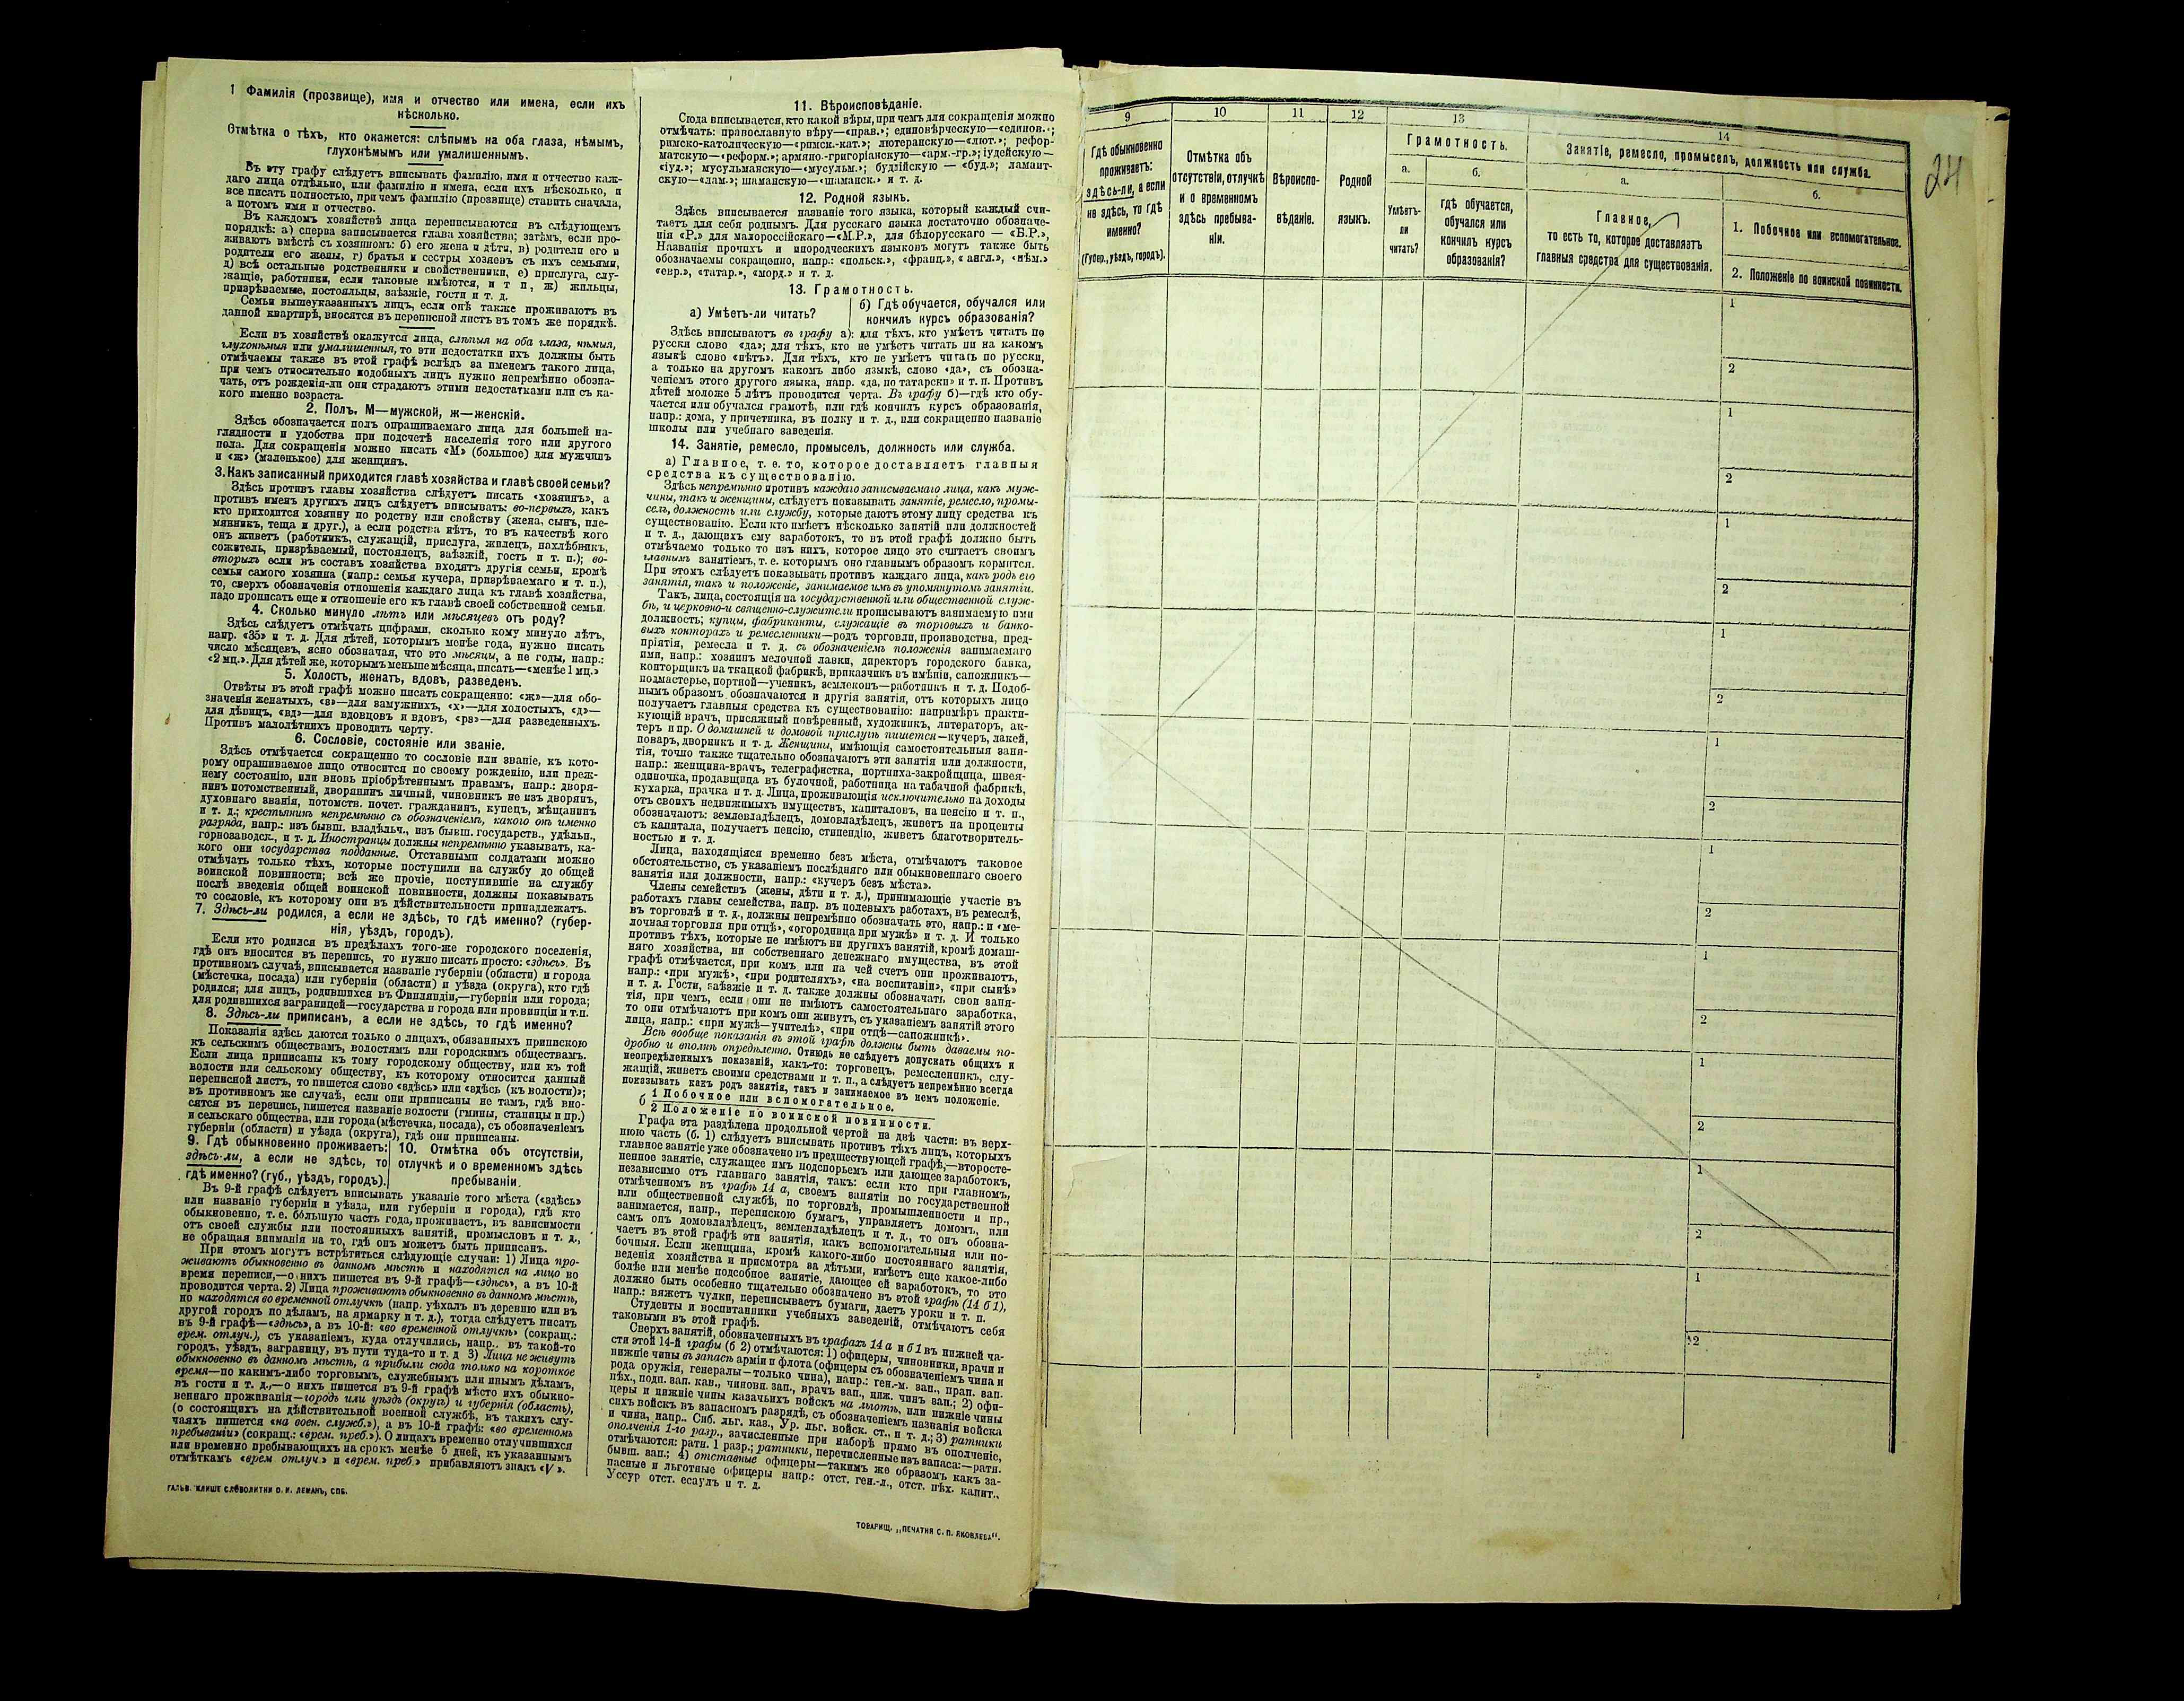 1 Фамилія (прозвище), имя и отчество или имена, если ихъ
нѣсколько.
Отмѣтка о тѣхъ, кто окажется: слѣпымъ на оба глаза, нѣмымъ,
глухонѣмымъ или умалишеннымъ.
Въ эту графу слѣдуетъ вписывать фамилію, имя и отчество каж-
даго лица отдѣльно, или фамилію и имена, если ихъ нѣсколько, и
все писать полностью, при чемъ фамилію (прозвище) ставить сначала,
а потомъ имя и отчество.
Въ каждомъ хозяйствѣ лица переписываются въ слѣдующемъ
порядкѣ: а) сперва записывается глава хозяйства; затѣмъ, если про-
живаютъ вмѣстѣ съ хозяиномъ: б) его жена и дѣти, в) родители его и
родители его жены, г) братья и сестры хозяевъ съ ихъ семьями,
д) всѣ остальные родственники и свойственники, е) прислуга, слу-
жащіе, работники, если таковые имѣются, и т п, ж) жильцы,
призрѣваемые, постояльцы, заѣзжіе, гости и т. д.
Семьи вышеуказанныхъ лицъ, если онѣ также проживаютъ въ
данной квартирѣ, вносятся въ переписной листъ въ томъ же порядкѣ.
Если въ хозяйствѣ окажутся лица, слѣпыя на оба глаза, нѣмыя,
глухонѣмыя или умалишенныя, то эти недостатки ихъ должны быть
отмѣчаемы также въ этой графѣ вслѣдъ за именемъ такого лица,
при чемъ относительно подобныхъ лицъ нужно непремѣнно обозна-
чать, отъ рожденія-ли они страдаютъ этими недостатками или съ ка-
кого именно возраста.
2. Полъ. М—мужской, ж—женскій.
Здѣсь обозначается полъ опрашиваемаго лица для большей на-
глядности и удобства при подсчетѣ населенія того или другого
пола. Для сокращенія можно писать «М» (большое) для мужчинъ
и «ж» (маленькое) для женщинъ.
3. Какъ записанный приходится главѣ хозяйства и главѣ своей семьи?
Здѣсь противъ главы хозяйства слѣдуетъ писать «хозяинъ», а
противъ именъ другихъ лицъ слѣдуетъ вписывать: во-первыхъ, какъ
кто приходится хозяину по родству или свойству (жена, сынъ, пле-
мянникъ, теща и друг.), а если родства нѣтъ, то въ качествѣ кого
онъ живетъ (работникъ, служащій, прислуга, жилецъ, нахлѣбникъ,
сожитель, призрѣваемый, постоялецъ, заѣзжій, гость и т. п.); во-
вторыхъ если въ составъ хозяйства входятъ другія семьи, кромѣ
семьи самого хозяина (напр.: семья кучера, призрѣваемаго и т. п.),
то, сверхъ обозначенія отношенія каждаго лица къ главѣ хозяйства,
надо прописать еще и отношеніе его къ главѣ своей собственной семьи.
4. Сколько минуло лѣтъ или мѣсяцевъ отъ роду?
Здѣсь слѣдуетъ отмѣчать цифрами, сколько кому минуло лѣтъ,
напр. «35» и т. д. Для дѣтей, которымъ менѣе года, нужно писать
число мѣсяцевъ, ясно обозначая, что это мѣсяцы, а не годы, напр.:
«2 мц.». Для дѣтей же, которымъ меньше мѣсяца, писать—«менѣе 1 мц.»
5. Холостъ, женатъ, вдовъ, разведенъ.
Отвѣты въ этой графѣ можно писать сокращенно: «ж»—для обо-
значенія женатыхъ, «з»—для замужнихъ, «х»—для холостыхъ, «д»—
для дѣвицъ, «вд»—для вдовцовъ и вдовъ, «рз»—для разведенныхъ.
Противъ малолѣтнихъ проводить черту.
6. Сословіе, состояніе или званіе.
Здѣсь отмѣчается сокращенно то сословіе или званіе, къ кото-
рому опрашиваемое лицо относится по своему рожденію, или преж-
нему состоянію, или вновь пріобрѣтеннымъ правамъ, напр.: дворя-
нинъ потомственный, дворянинъ личный, чиновникъ не изъ дворянъ,
духовнаго званія, потомств. почет. гражданинъ, купецъ, мѣщанинъ
и т. д.; крестьянинъ непремѣнно съ обозначеніемъ, какого онъ именно
разряда, напр.: изъ бывш. владѣльч., изъ бывш. государств., удѣльн.,
горнозаводск., и т. д. Иностранцы должны непремѣнно указывать, ка-
кого они государства подданные. Отставными солдатами можно
отмѣчать только тѣхъ, которые поступили на службу до общей
воинской повинности; всѣ же прочіе, поступившіе на службу
послѣ введенія общей воинской повинности, должны показывать
то сословіе, къ которому они въ дѣйствительности принадлежатъ.
7. Здѣсь-ли родился, а если не здѣсь, то гдѣ именно? (губер-
нія, уѣздъ, городъ).
Если кто родился въ предѣлахъ того-же городского поселенія,
гдѣ онъ вносится въ перепись, то нужно писать просто: «здѣсь». Въ
противномъ случаѣ, вписывается названіе губерніи (области) и города
(мѣстечка, посада) или губерніи (области) и уѣзда (округа), кто гдѣ
родился; для лицъ, родившихся въ Финляндіи,—губерніи или города;
для родившихся заграницей—государства и города или провинціи и т.п.
8. Здѣсь-ли приписанъ, а если не здѣсь, то гдѣ именно?
Показанія здѣсь даются только о лицахъ, обязанныхъ припискою
къ сельскимъ обществамъ, волостямъ или городскимъ обществамъ.
Если лица приписаны къ тому городскому обществу, или къ той
волости или сельскому обществу, къ которому относится данный
переписной листъ, то пишется слово «здѣсь» или «здѣсь (къ волости)»;
въ противномъ же случаѣ, если они приписаны не тамъ, гдѣ вно-
сятся въ перепись, пишется названіе волости (гмины, станицы и пр.)
и сельскаго общества, или города (мѣстечка, посада), съ обозначеніемъ
губерніи (области) и уѣзда (округа), гдѣ они приписаны.
9. Гдѣ обыкновенно проживаетъ:
здѣсь-ли, а если не здѣсь, то
гдѣ именно? (губ., уѣздъ, городъ).
10. Отмѣтка объ отсутствіи,
отлучкѣ и о временномъ здѣсь
пребываніи.
Въ 9-й графѣ слѣдуетъ вписывать указаніе того мѣста («здѣсь»
или названіе губерніи и уѣзда, или губерніи и города), гдѣ кто
обыкновенно, т. е. бо́льшую часть года, проживаетъ, въ зависимости
отъ своей службы или постоянныхъ занятій, промысловъ и т. д.,
не обращая вниманія на то, гдѣ онъ можетъ быть приписанъ.
При этомъ могутъ встрѣтиться слѣдующіе случаи: 1) Лица про-
живаютъ обыкновенно въ данномъ мѣстѣ и находятся на лицо во
время переписи,—о нихъ пишется въ 9-й графѣ—«здѣсь», а въ 10-й
проводится черта. 2) Лица проживаютъ обыкновенно въ данномъ мѣстѣ,
но находятся во временной отлучкѣ (напр. уѣхалъ въ деревню или въ
другой городъ по дѣламъ, на ярмарку и т. д.), тогда слѣдуетъ писать
въ 9-й графѣ—«здѣсь», а въ 10-й: «во временной отлучкѣ» (сокращ.:
врем. отлуч.), съ указаніемъ, куда отлучились, напр.. въ такой-то
городъ, уѣздъ, заграницу, въ пути туда-то и т. д 3) Лица не живутъ
обыкновенно въ данномъ мѣстѣ, а прибыли сюда только на короткое
время—по какимъ-либо торговымъ, служебнымъ или инымъ дѣламъ,
въ гости и т. д.,—о нихъ пишется въ 9-й графѣ мѣсто ихъ обыкно-
веннаго проживанія—городъ или уѣздъ (округъ) и губернія (область),
(о состоящихъ на дѣйствительной военной службѣ, въ такихъ слу-
чаяхъ пишется «на воен. служб.»), а въ 10-й графѣ: «во временномъ
пребываніи» (сокращ.: «врем. преб.»). О лицахъ временно отлучившихся
или временно пребывающихъ на срокъ менѣе 5 дней, къ указаннымъ
отмѣткамъ «врем отлуч.» и «врем. преб.» прибавляютъ знакъ «V».
ГАЛЬВ. КЛИШЕ СЛОВОЛИТНИ О. И. ЛЕМАНЪ, СПБ.
11. Вѣроисповѣданіе.
Сюда вписывается, кто какой вѣры, при чемъ для сокращенія можно
отмѣчать: православную вѣру—«прав.»; единовѣрческую—«единов.»;
римско-католическую—«римск.-кат.»; лютеранскую—«лют.»; рефор-
матскую—«реформ.»; армяно.-григоріанскую—«арм.-гр.»; іудейскую—
«іуд.»; мусульманскую—«мусульм.»; буддійскую — «буд.»; ламаит-
скую—«лам.»; шаманскую—«шаманск.» и т. д.
12. Родной языкъ.
Здѣсь вписывается названіе того языка, который каждый счи-
таетъ для себя роднымъ. Для русскаго языка достаточно обозначе-
нія «Р.» для малороссійскаго—«М.Р.», для бѣлорусскаго — «Б.Р.»,
Названія прочихъ и инородческихъ языковъ могутъ также быть
обозначаемы сокращенно, напр.: «польск.», «франц.», «англ.», «нѣм.»
«евр.», «татар.», «морд.» и т. д.
13. Грамотность.
а) Умѣетъ-ли читать?
б) Гдѣ обучается, обучался или
кончилъ курсъ образованія?
Здѣсь вписываютъ въ графу а): для тѣхъ, кто умѣетъ читать по
русски слово «да»; для тѣхъ, кто не умѣетъ читать ни на какомъ
языкѣ слово «нѣтъ». Для тѣхъ, кто не умѣетъ читать по русски,
а только на другомъ какомъ либо языкѣ, слово «да», съ обозна-
ченіемъ этого другого языка, напр. «да, по татарски» и т. п. Противъ
дѣтей моложе 5 лѣтъ проводится черта. Въ графу б)—гдѣ кто обу-
чается или обучался грамотѣ, или гдѣ кончилъ курсъ образованія,
напр.: дома, у причетника, въ полку и т. д., или сокращенно названіе
школы или учебнаго заведенія.
14. Занятіе, ремесло, промыселъ, должность или служба.
а) Главное, т. е. то, которое доставляетъ главныя
средства къ существованію.
Здѣсь непремѣнно противъ каждаго записываемаго лица, какъ муж-
чины, такъ и женщины, слѣдуетъ показывать занятіе, ремесло, промы-
селъ, должность или службу, которые даютъ этому лицу средства къ
существованію. Если кто имѣетъ нѣсколько занятій или должностей
и т. д., дающихъ ему заработокъ, то въ этой графѣ должно быть
отмѣчаемо только то изъ нихъ, которое лицо это считаетъ своимъ
главнымъ занятіемъ, т. е. которымъ оно главнымъ образомъ кормится.
При этомъ слѣдуетъ показывать противъ каждаго лица, какъ родъ его
занятія, такъ и положеніе, занимаемое имъ въ упомянутомъ занятіи.
Такъ, лица, состоящія на государственной или общественной служ-
бѣ, и церковно-и священно-служители прописываютъ занимаемую ими
должность; купцы, фабриканты, служащіе въ торговыхъ и банко-
выхъ конторахъ и ремесленники—родъ торговли, производства, пред-
пріятія, ремесла и т. д. съ обозначеніемъ положенія занимаемаго
ими, напр.: хозяинъ мелочной лавки, директоръ городского банка,
конторщикъ на ткацкой фабрикѣ, приказчикъ въ имѣніи, сапожникъ—
подмастерье, портной—ученикъ, землекопъ—работникъ и т. д. Подоб-
нымъ образомъ обозначаются и другія занятія, отъ которыхъ лицо
получаетъ главныя средства къ существованію: напримѣръ практи-
кующій врачъ, присяжный повѣренный, художникъ, литераторъ, ак-
теръ и пр. О домашней и домовой прислугѣ пишется—кучеръ, лакей,
поваръ, дворникъ и т. д. Женщины, имѣющія самостоятельныя заня-
тія, точно также тщательно обозначаютъ эти занятія или должности,
напр.: женщина-врачъ, телеграфистка, портниха-закройщица, швея-
одиночка, продавщица въ булочной, работница на табачной фабрикѣ,
кухарка, прачка и т. д. Лица, проживающія исключительно на доходы
отъ своихъ недвижимыхъ имуществъ, капиталовъ, на пенсію и т. п.,
обозначаютъ: землевладѣлецъ, домовладѣлецъ, живетъ на проценты
съ капитала, получаетъ пенсію, стипендію, живетъ благотворитель-
ностью и т. д.
Лица, находящіяся временно безъ мѣста, отмѣчаютъ таковое
обстоятельство, съ указаніемъ послѣдняго или обыкновеннаго своего
занятія или должности, напр.: «кучеръ безъ мѣста».
Члены семействъ (жены, дѣти и т. д.), принимающіе участіе въ
работахъ главы семейства, напр. въ полевыхъ работахъ, въ ремеслѣ,
въ торговлѣ и т. д., должны непремѣнно обозначать это, напр.: и «ме-
лочная торговля при отцѣ», «огородница при мужѣ» и т. д. И только
противъ тѣхъ, которые не имѣютъ ни другихъ занятій, кромѣ домаш-
няго хозяйства, ни собственнаго денежнаго имущества, въ этой
графѣ отмѣчается, при комъ или на чей счетъ они проживаютъ,
напр.: «при мужѣ», «при родителяхъ», «на воспитаніи», «при сынѣ»
и т. д. Гости, заѣзжіе и т. д. также должны обозначать свои заня-
тія, при чемъ, если они не имѣютъ самостоятельнаго заработка,
то они отмѣчаютъ при комъ они живутъ, съ указаніемъ занятій этого
лица, напр.: «при мужѣ—учителѣ», «при отцѣ—сапожникѣ».
Всѣ вообще показанія въ этой графѣ должны быть даваемы по-
дробно и вполнѣ опредѣленно. Отнюдь не слѣдуетъ допускать общихъ и
неопредѣленныхъ показаній, какъ-то: торговецъ, ремесленникъ, слу-
жащій, живетъ своими средствами и т. п., а слѣдуетъ непремѣнно всегда
показывать какъ родъ занятія, такъ и занимаемое въ немъ положеніе.
б 1 Побочное или вспомогательное.
2 Положеніе по воинской повинности.
Графа эта раздѣлена продольной чертой на двѣ части: въ верх-
нюю часть (б. 1) слѣдуетъ вписывать противъ тѣхъ лицъ, которыхъ
главное занятіе уже обозначено въ предшествующей графѣ,—второсте-
пенное занятіе, служащее имъ подспорьемъ или дающее заработокъ,
независимо отъ главнаго занятія, такъ: если кто при главномъ,
отмѣченномъ въ графѣ 14 а, своемъ занятіи по государственной
или общественной службѣ, по торговлѣ, промышленности и пр.,
занимается, напр., перепискою бумагъ, управляетъ домомъ, или
самъ онъ домовладѣлецъ, землевладѣлецъ и т. д., то онъ обозна-
чаетъ въ этой графѣ эти занятія, какъ вспомогательныя или по-
бочныя. Если женщина, кромѣ какого-либо постояннаго занятія,
веденія хозяйства и присмотра за дѣтьми, имѣетъ еще какое-либо
болѣе или менѣе подсобное занятіе, дающее ей заработокъ, то это
должно быть особенно тщательно обозначено въ этой графѣ (14 б 1),
напр.: вяжетъ чулки, переписываетъ бумаги, даетъ уроки и т. п.
Студенты и воспитанники учебныхъ заведеній, отмѣчаютъ себя
таковыми въ этой графѣ.
Сверхъ занятій, обозначенныхъ въ графахъ 14 а и б 1 въ нижней ча-
сти этой 14-й графы (б 2) отмѣчаются: 1) офицеры, чиновники, врачи и
нижніе чины въ запасѣ арміи и флота (офицеры съ обозначеніемъ чина и
рода оружія, генералы—только чина), напр.: ген.-м. зап., прап. зап.
пѣх., подп. зап. кав., чиновн. зап., врачъ зап., ниж. чинъ зап.; 2) офи-
церы и нижніе чины казачьихъ войскъ на льготѣ, или нижніе чины
сихъ войскъ въ запасномъ разрядѣ, съ обозначеніемъ названія войска
и чина, напр.. Сиб. льг. каз., Ур. льг. войск. ст., и т. д.; 3) ратники
ополченія 1-го разр., зачисленные при наборѣ прямо въ ополченіе,
отмѣчаются: ратн. 1 разр.; ратники, перечисленные изъ запаса:—ратн.
бывш. зап.; 4) отставные офицеры—такимъ же образомъ какъ за-
пасные и льготные офицеры напр.: отст. ген.-л., отст. пѣх. капит.,
Уссур отст. есаулъ и т. д.
ТОВАРИЩ. „ПЕЧАТНЯ С. П. ЯКОВЛЕВА“.
24
9 10 11 12 13 14
Гдѣ обыкновенно
проживаетъ:
здѣсь-ли, а если
не здѣсь, то гдѣ
именно?
(Губер., уѣздъ, городъ).
Отмѣтка объ
отсутствіи, отлучкѣ
и о временномъ
здѣсь пребыва-
ніи.
Вѣроиспо-
вѣданіе.
Родной
языкъ.
Грамотность.
а.
Умѣетъ-
ли
читать?
б.
гдѣ обучается,
обучался или
кончилъ курсъ
образованія?
Занятіе, ремесло, промыселъ, должность или служба.
а.
Главное,
то есть то, которое доставляетъ
главныя средства для существованія.
б.
1. Побочное или вспомогательное.
2. Положеніе по воинской повинности.
1
2
1
2
1
2
1
2
1
2
1
2
1
2
1
2
1
2
1
2